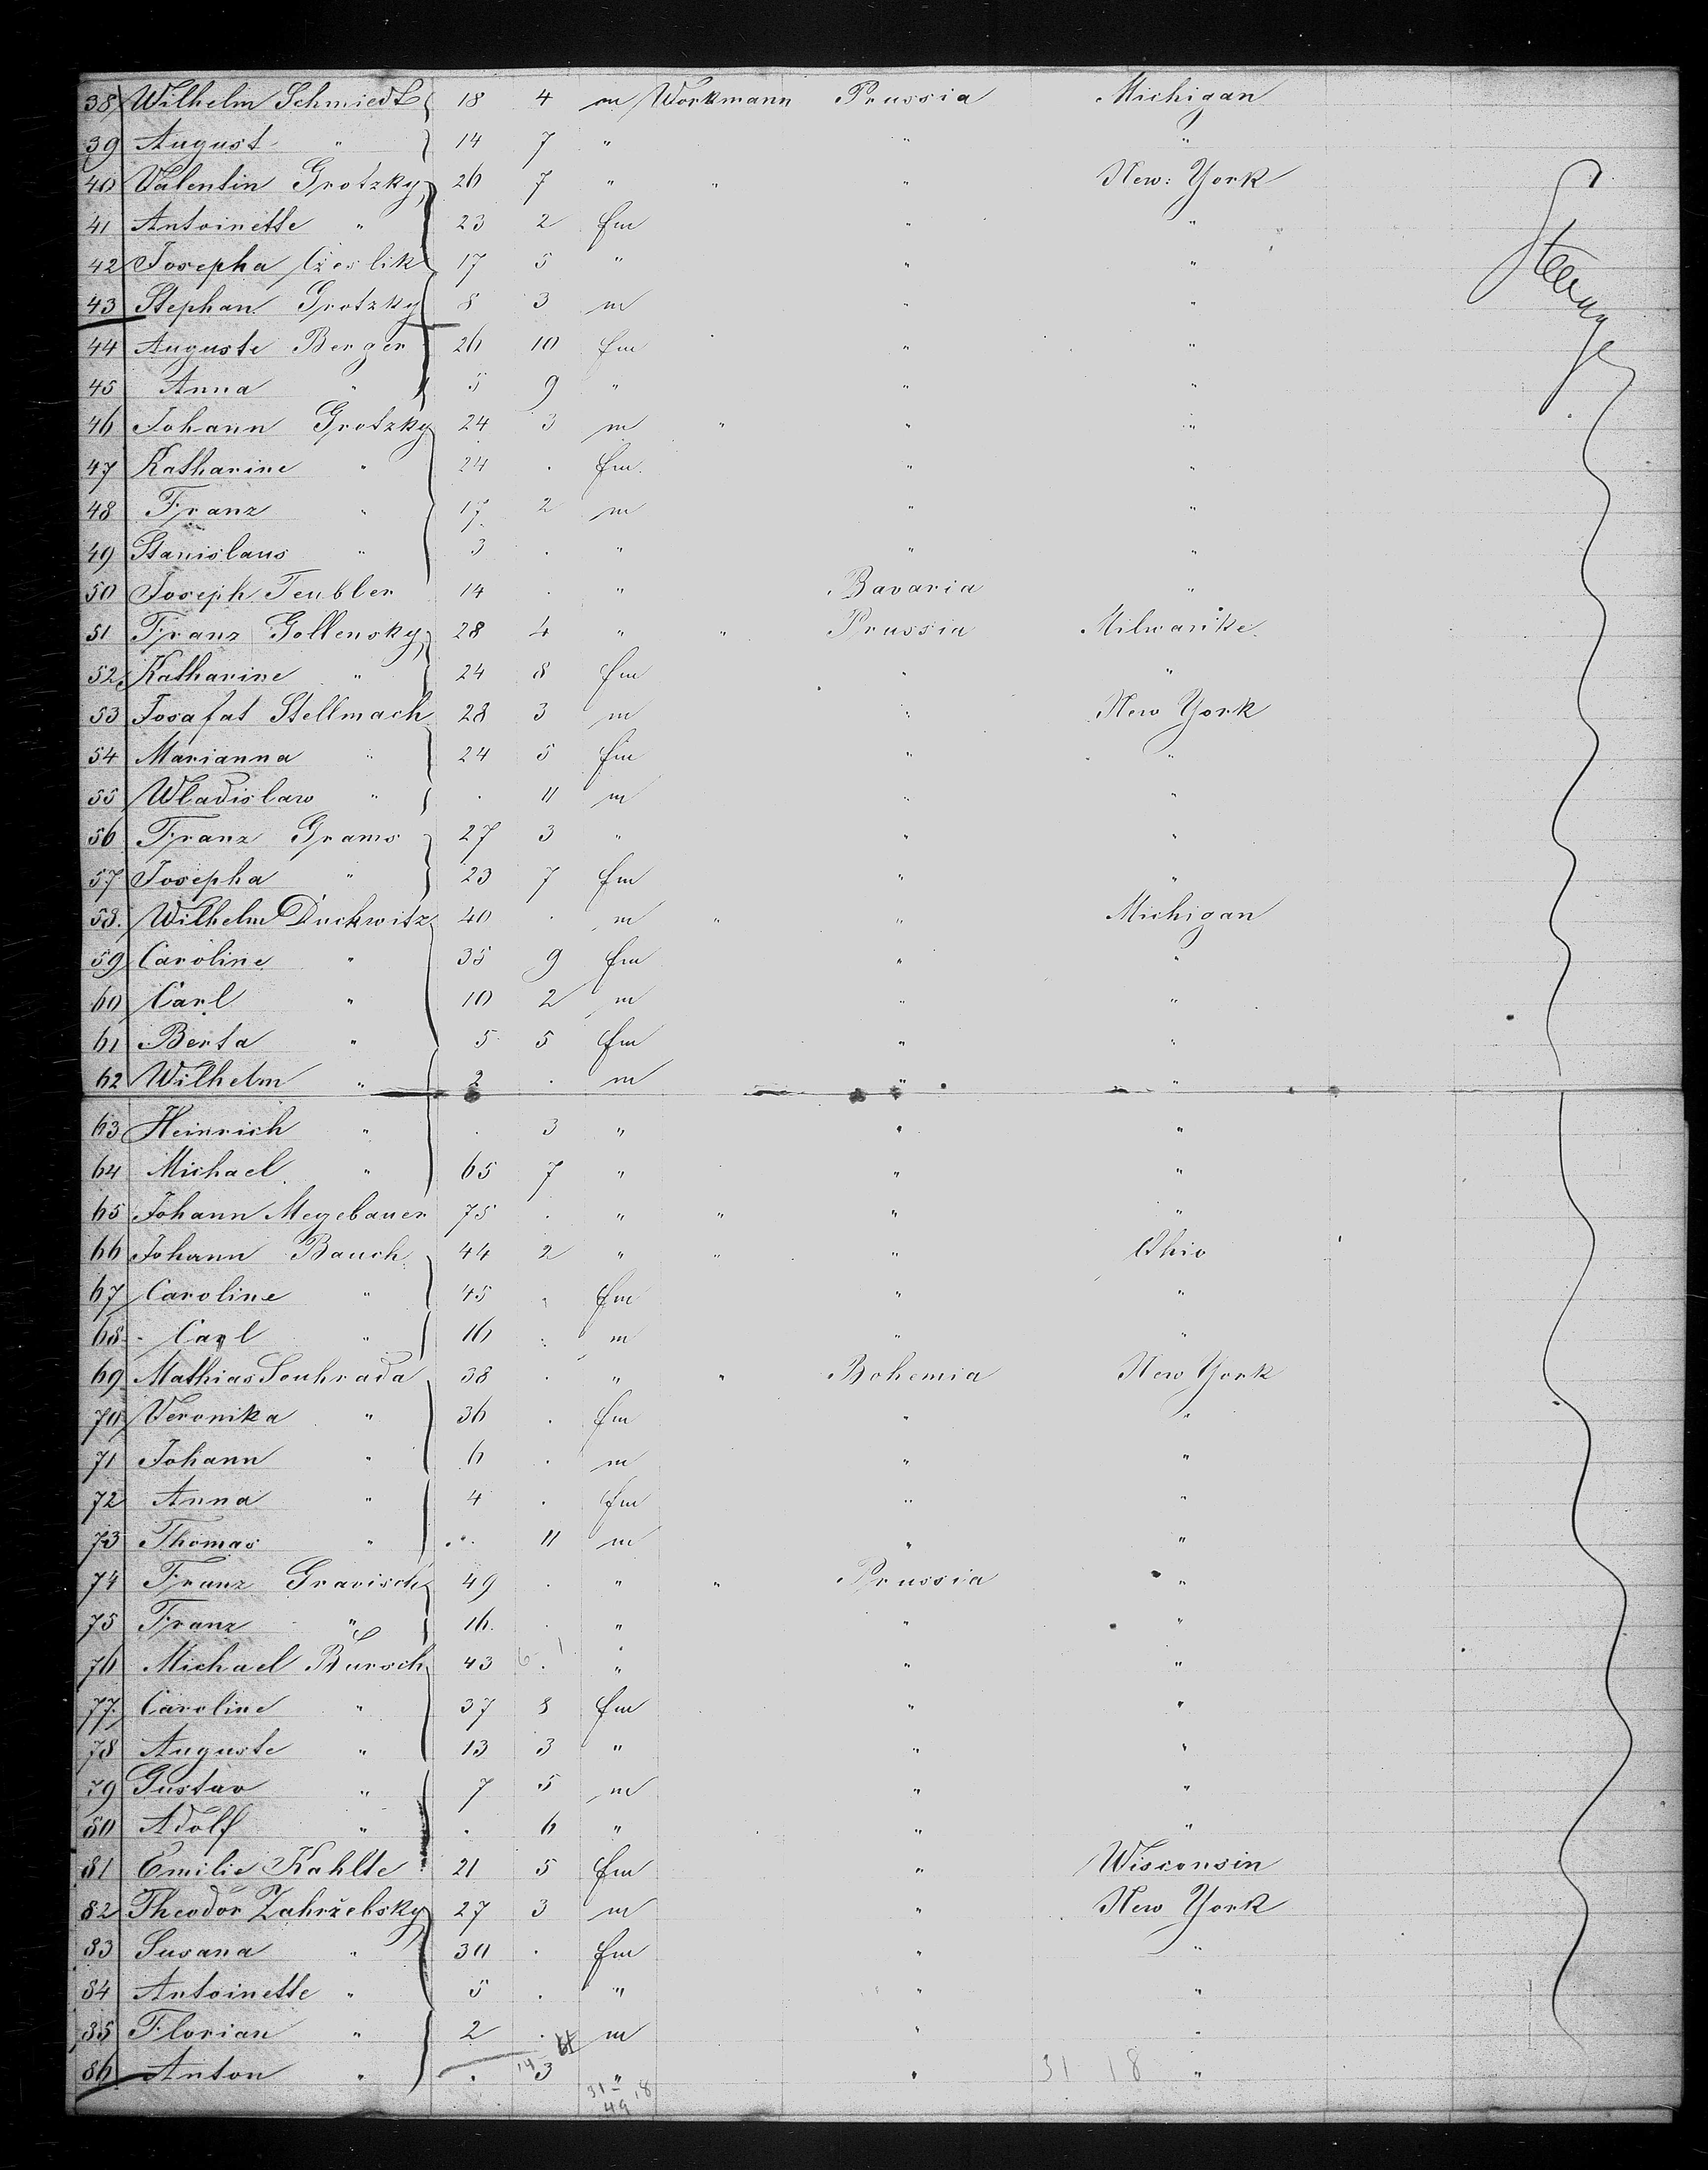 38 Wilhelm Schmiedt 18 4 m Workmann Prussia Michigan
39 August " 14 7 " " "
40 Valentin Grotzky 26 7 " " " New: York
41 Antoinette " 23 2 fm " "
42 Josepha Czeslik 17 5 " " "
43 Stephan Grotzky 8 3 m " "
44 Auguste Berger 26 10 fm " "
45 Anna " 5 9 " " "
46 Johann Grotzky 24 3 m " " "
47 Katharine " 24 . fm " "
48 Franz " 17 2 m " "
49 Stanislaus " 3 . " " "
50 Joseph Teubler 14 . " Bavaria "
51 Franz Gollensky 28 4 " " Prussia Milwauke.
52 Katharine " 24 8 fm " "
53 Josafat Stellmach 28 3 m " New York
54 Marianna " 24 5 fm " "
55 Wladislaw " . 11 m " "
56 Franz Grams 27 3 " " "
57 Josepha " 23 7 fm " "
58. Wilhelm Duckwitz 40 . m " " Michigan
59 Caroline " 35 9 fm " "
60 Carl " 10 2 m " "
61 Berta " 5 5 fm " "
62 Wilhelm " 2 . m " "
63 Heinrich " . 3 " " "
64 Michael " 65 7 " " "
65 Johann Megebauer 75 . " " " "
66 Johann Bauch 44 2 " " " Ohio
67 Caroline " 45 . fm " "
68 Carl " 16 . m " "
69 Mathias Souhrada 38 . " " Bohemia New York
70 Veronika " 36 . fm " "
71 Johann " 6 . m " "
72 Anna " 4 . fm " "
73 Thomas " . 11 m " "
74 Franz Gravisch 49 . " " Prussia "
75 Franz " 16. . " " "
76 Michael Bursch 43 . " " "
77. Caroline " 37 8 fm " "
78 Auguste " 13 3 " " "
79 Gustav " 7 5 m " "
80 Adolf " . 6 " " "
81 Emilie Kahlte 21 5 fm " Wisconsin
82 Theodor Zahrzebsky 27 3 m " New York
83 Susana " 30 . fm " "
84 Antoinette " 5 . " " "
85 Florian " 2 . m " "
86 Anton " . 3 " " "
31 18
14
31 18
49
Steerage